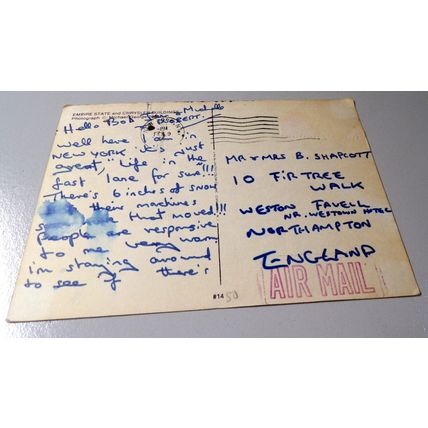 EMPIRE STATE and CHRYSLER BUILDINGS
Photograph
Hello Bob Michelle
ROBERT.
well here I am in
NEW YORK it's just
great, Life in the
fast lane for sure!!!
There's 6 inches of snow
their machines
on that moves!!!
people are responsive
to me very warm
i'm staying around
to see if there's
MR & MRS B. SHAPCOTT
10 FIR TREE
WALK
WESTON FAVELL
NR. WESTOWN HOTEL
NORTHAMPTON
ENGLAND
AIR MAIL
#14 50